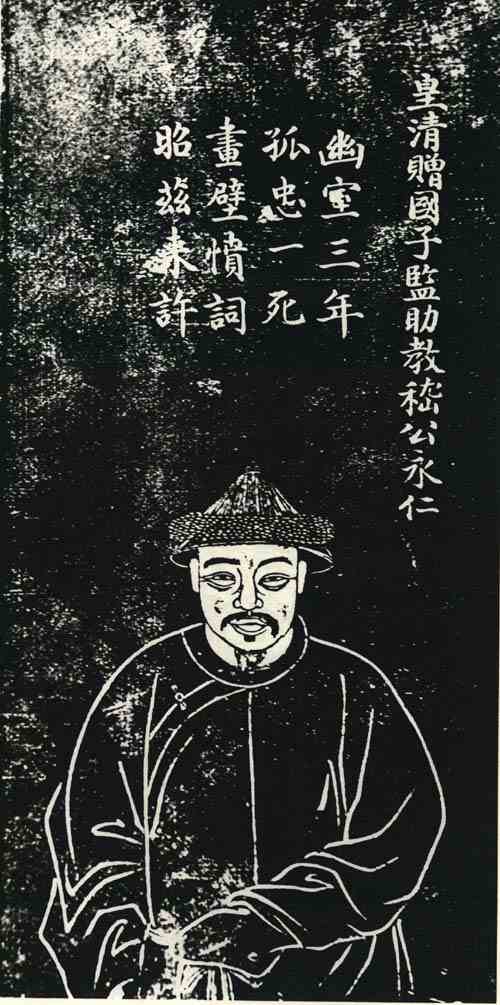 皇清贈國子監助教嵇公永仁
幽室三年
孤忠一死
畫壁憤詞
昭茲來許